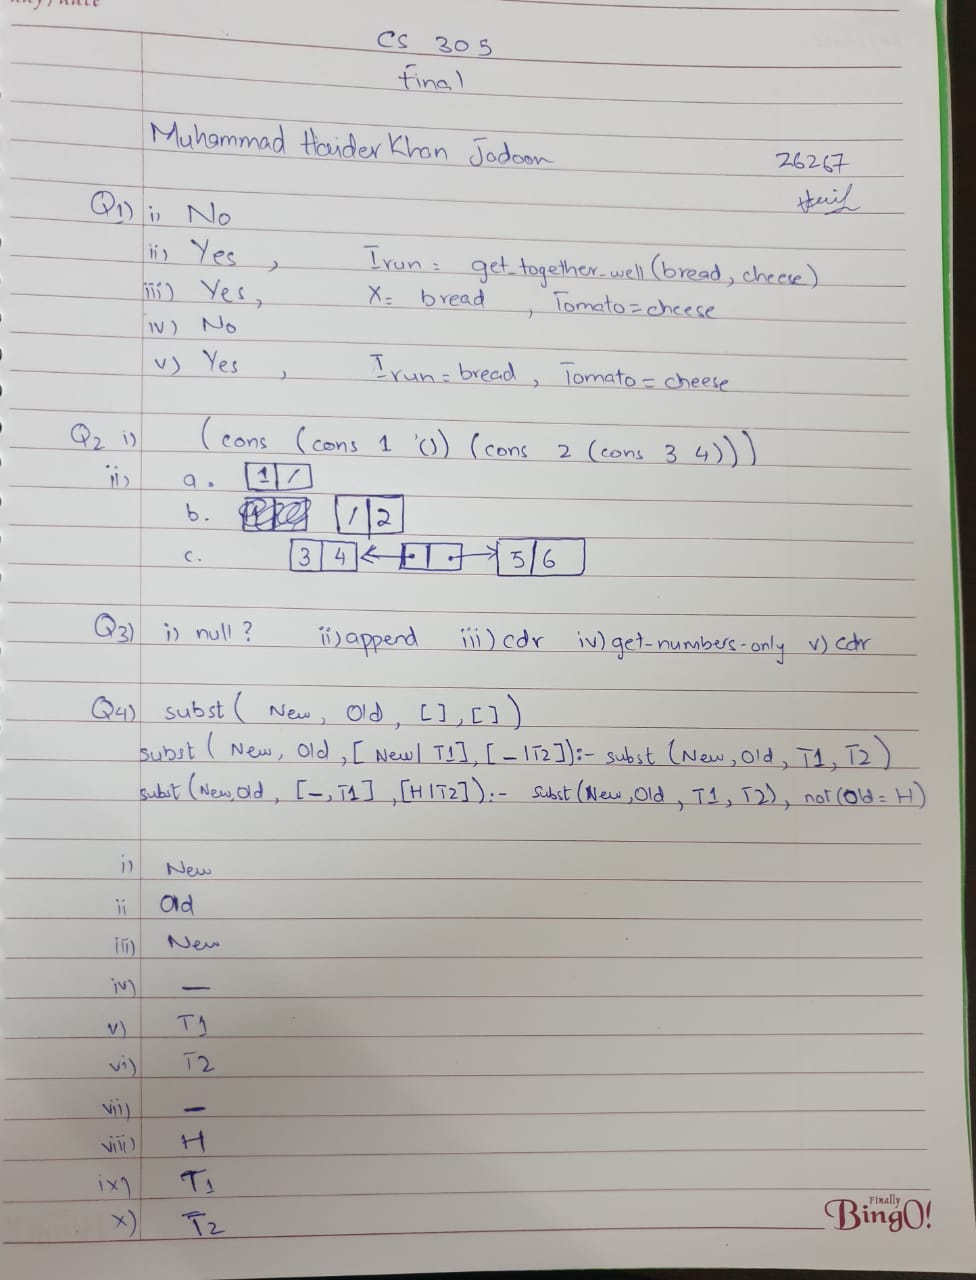 CS 305
final
Muhammad Haider Khan Jadoon 26267
Q1) i) No
ii) Yes , Irun = get_together_well (bread, cheese)
iii) Yes, X = bread , Tomato = cheese
iv) No
v) Yes , Irun = bread , Tomato = cheese
Q2 i) (cons (cons 1 '()) (cons 2 (cons 3 4)))
ii) a. 1 /
b. / 2
c. 3 4 5 6
Q3) i) null? ii) append iii) cdr iv) get-numbers-only v) cdr
Q4) subst ( New, Old, [ ], [ ] )
subst ( New, Old, [ New| T1], [ _ |T2]) :- subst (New, Old, T1, T2)
subst (New, Old, [_, T1] , [H|T2]) :- subst (New, Old, T1, T2), not (Old = H)
i) New
ii Old
iii) New
iv) _
v) T1
vi) T2
vii) _
viii) H
ix) T1
x) T2
Finally
BingO!